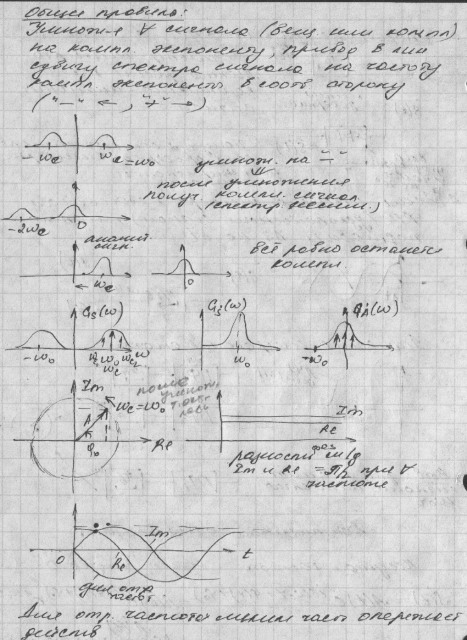 Общие правила:
Умножение ∀ сигнала (вещ. или компл)
на компл. экспоненту, привод в лин
сдвигу спектра сигнала на частоту
компл экспоненты в соотв сторону
("—" ←, "+" →)
-ωc ωc = ω0
умнож. на "—"
⇓
после умножения
получ компл. сигнал
(спектр несим.)
-2ωc 0
аналит
сигн.
← ωc 0
всё равно останется
компл.
Gs(ω) Gṡ(ω) GȦ(ω)
-ω0 ω0 ωc ω
ω0 -ω0
Im
после
умнож.
ωc = ω0
A
φ0 Re
Im
Re
разность фаз м/д
Im и Re = π/2 при ∀
частоте
Im
Re
0 t
для отр
частот
Для отр. частоты мнимая часть опережает
действ